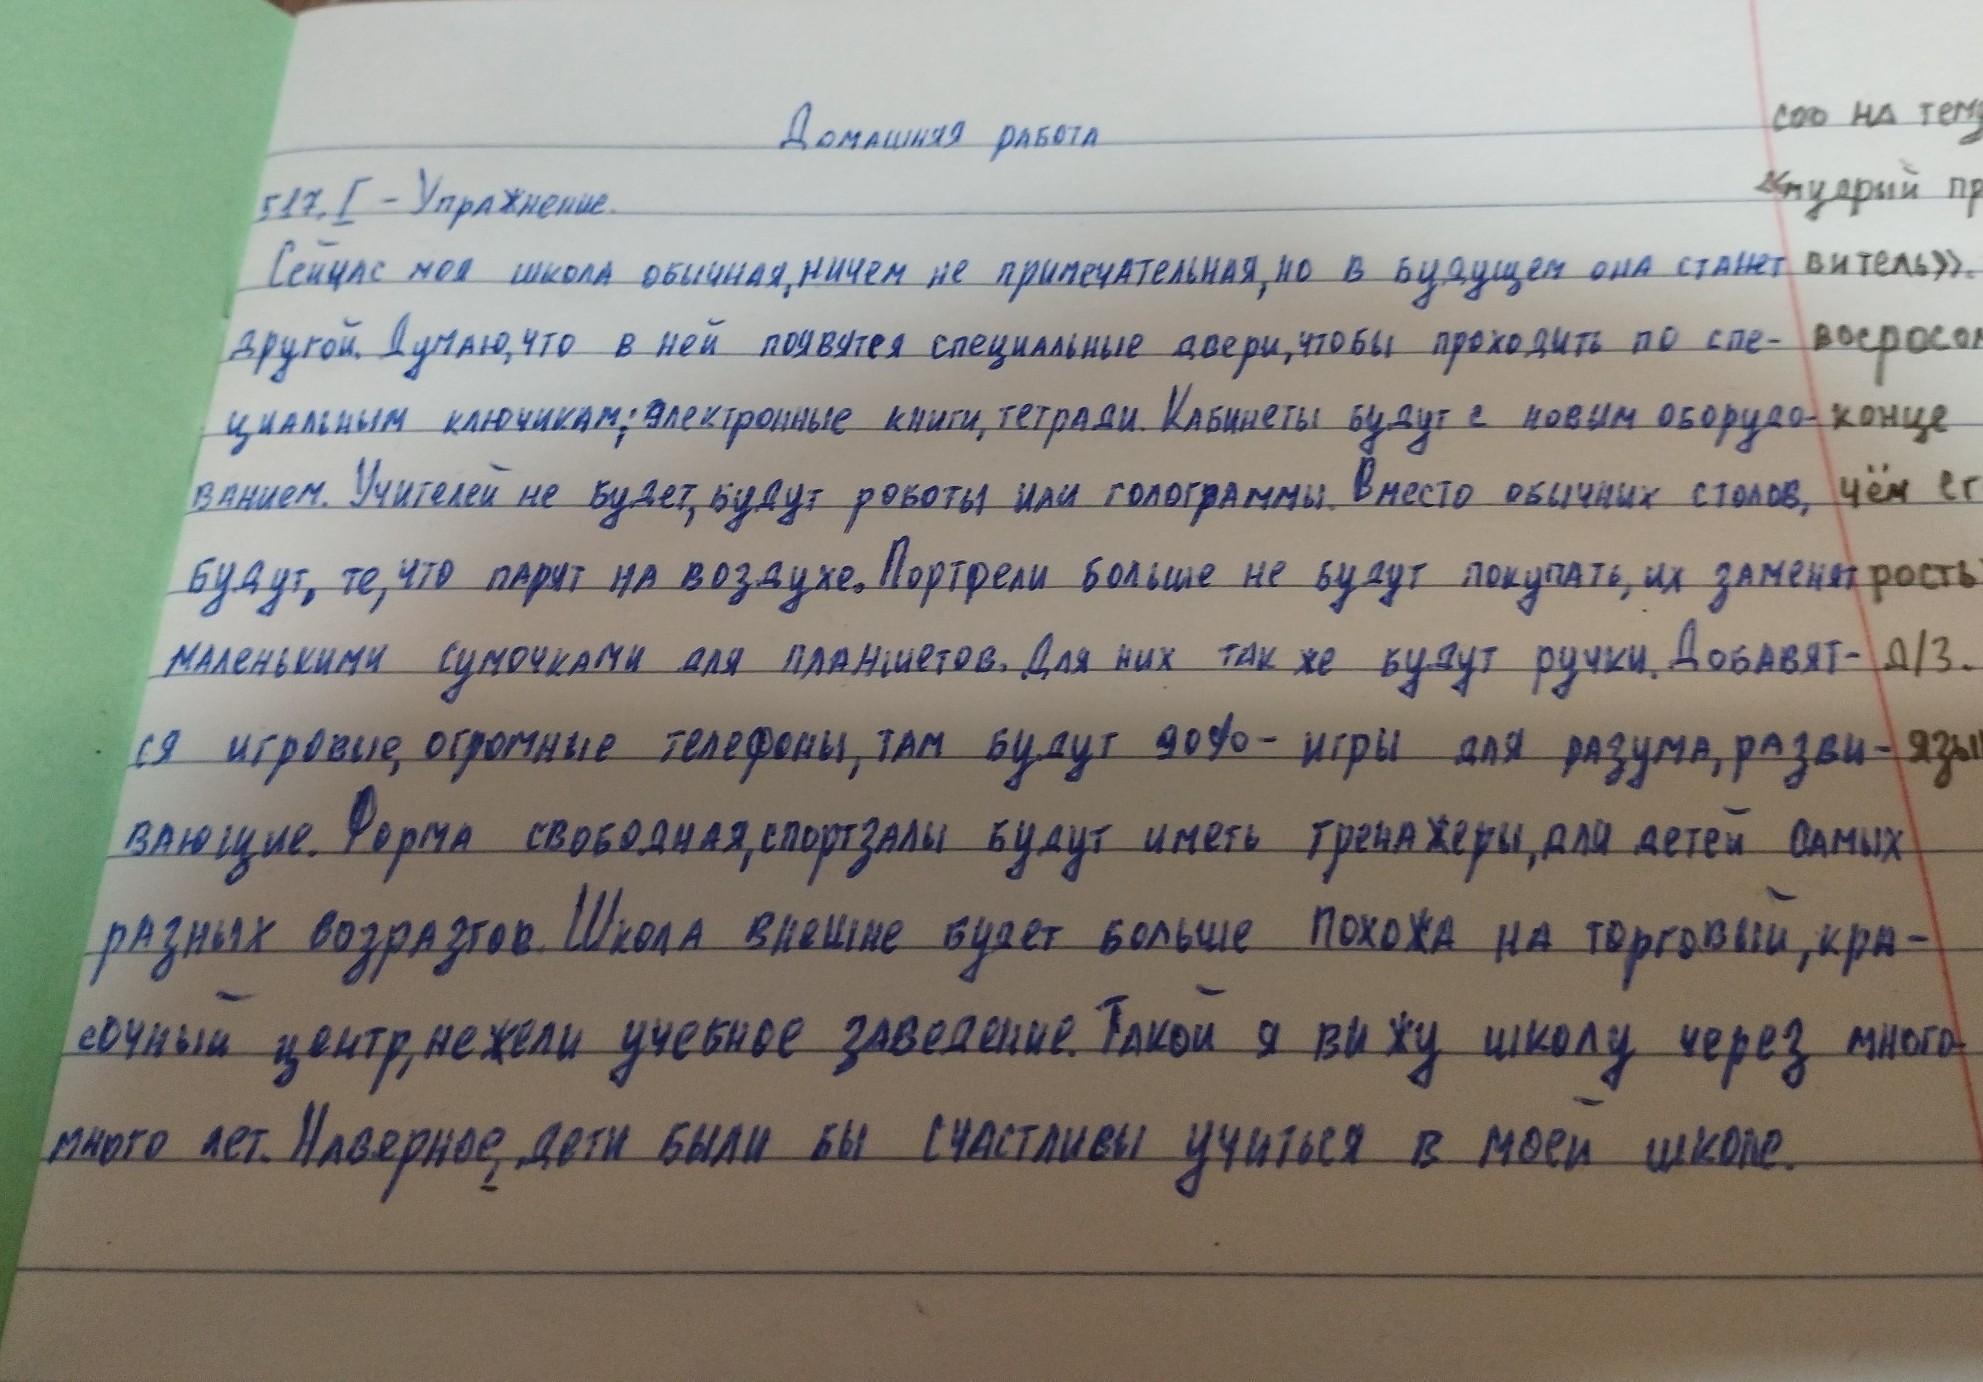 Домашняя работа
517. I - Упражнение.
Сейчас моя школа обычная, ничем не примечательная, но в будущем она станет
другой. Думаю, что в ней появятся специальные двери, чтобы проходить по спе-
циальным ключикам; электронные книги, тетради. Кабинеты будут с новым оборудо-
ванием. Учителей не будет, будут роботы или голограммы. Вместо обычных столов,
будут, те, что парят на воздухе. Портфели больше не будут покупать, их заменят
маленькими сумочками для планшетов. Для них так же будут ручки. Добавят-
ся игровые, огромные телефоны, там будут 90% - игры для разума, разви-
вающие. Форма свободная, спортзалы будут иметь тренажеры, для детей самых
разных возразтов. Школа внешне будет больше похожа на торговый, кра-
сочный центр, нежели учебное заведение. Такой я вижу школу через много-
много лет. Наверное, дети были бы счастливы учиться в моей школе.
соо на тему
«мудрый пр
витель».
конце
чём ег
рость
Д/З.
язы